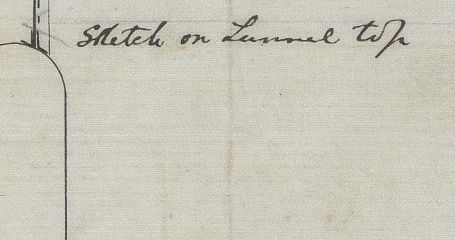 Sketch on Tunnel top